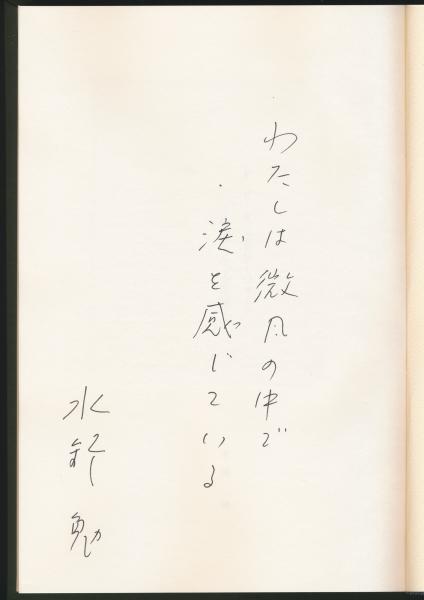 わたしは微風の中で
涙を感じている
水野 勉